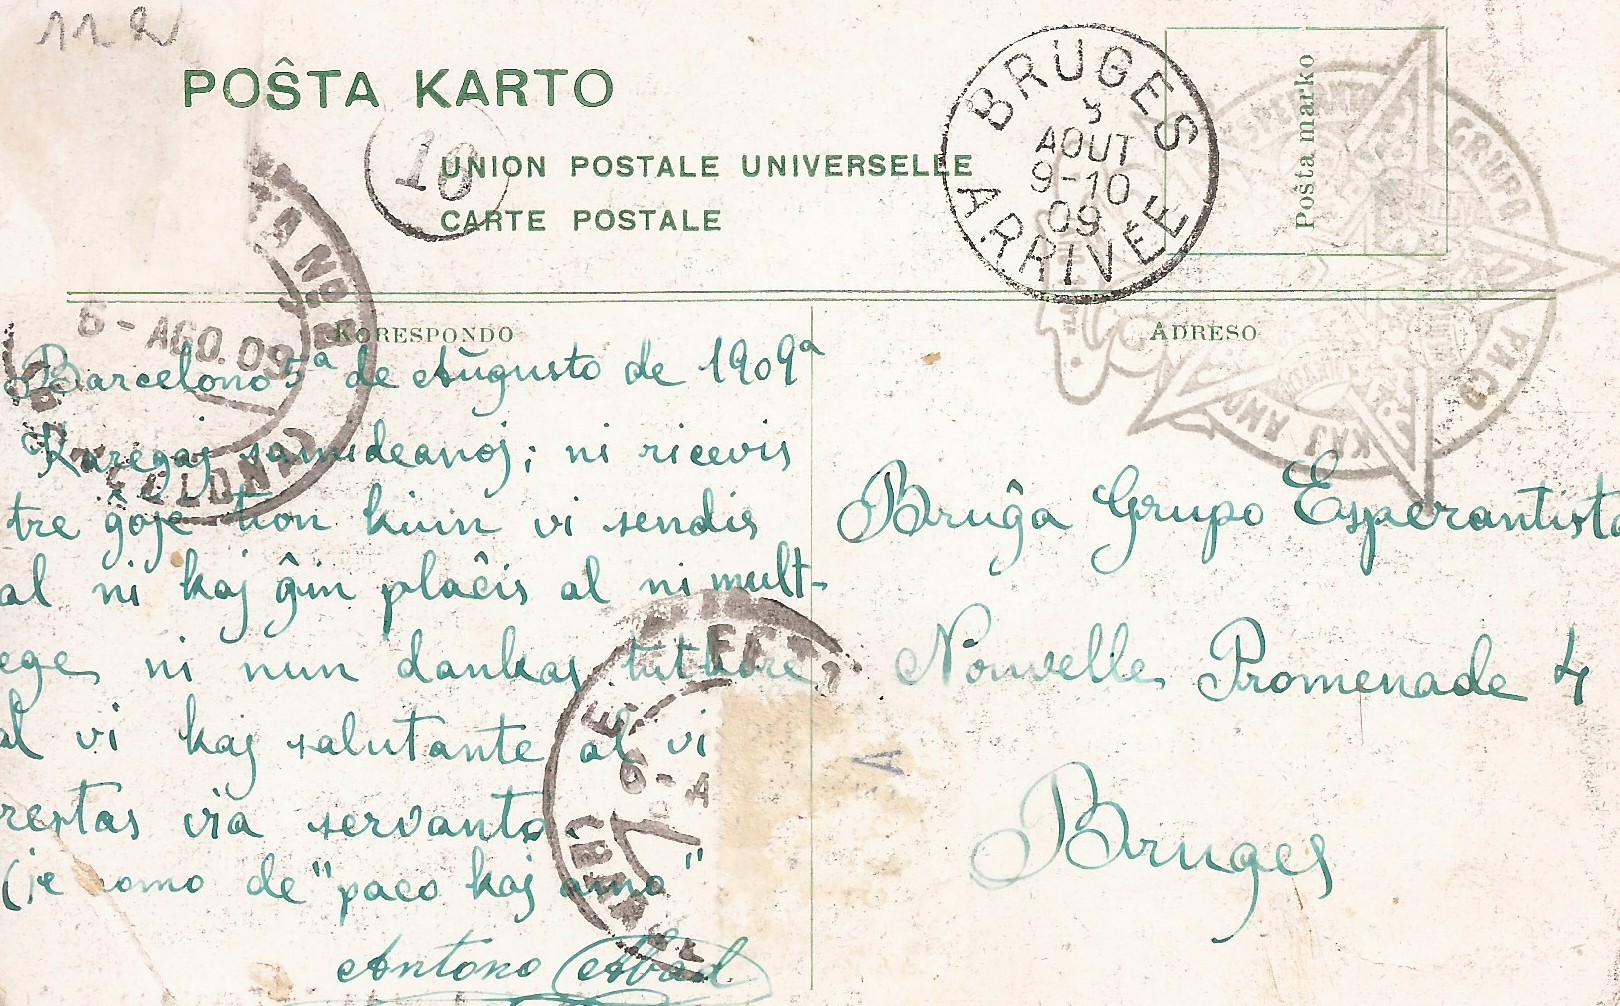 112
POŜTA KARTO
10
UNION POSTALE UNIVERSELLE
CARTE POSTALE
BRUGES
AOUT
9-10
09
ARRIVÉE
Poŝta marko
ESPERANTO GRUPO PACO KAJ AMO
6-AGO.09
KORESPONDO
ADRESO
Barcelono 5ª de Aŭgusto de 1909ª
Karegaj samideanoj; ni ricevis
tre ĝoje tion kiun vi sendis
al ni kaj ĝin plaĉis al ni mult-
ege, ni nun dankas tutkore
al vi kaj salutante al vi
restas via servanto.
(je nomo de "paco kaj amo"
Antono Abad
Bruĝa Grupo Esperantista
Nouvelle Promenade 4
Bruges